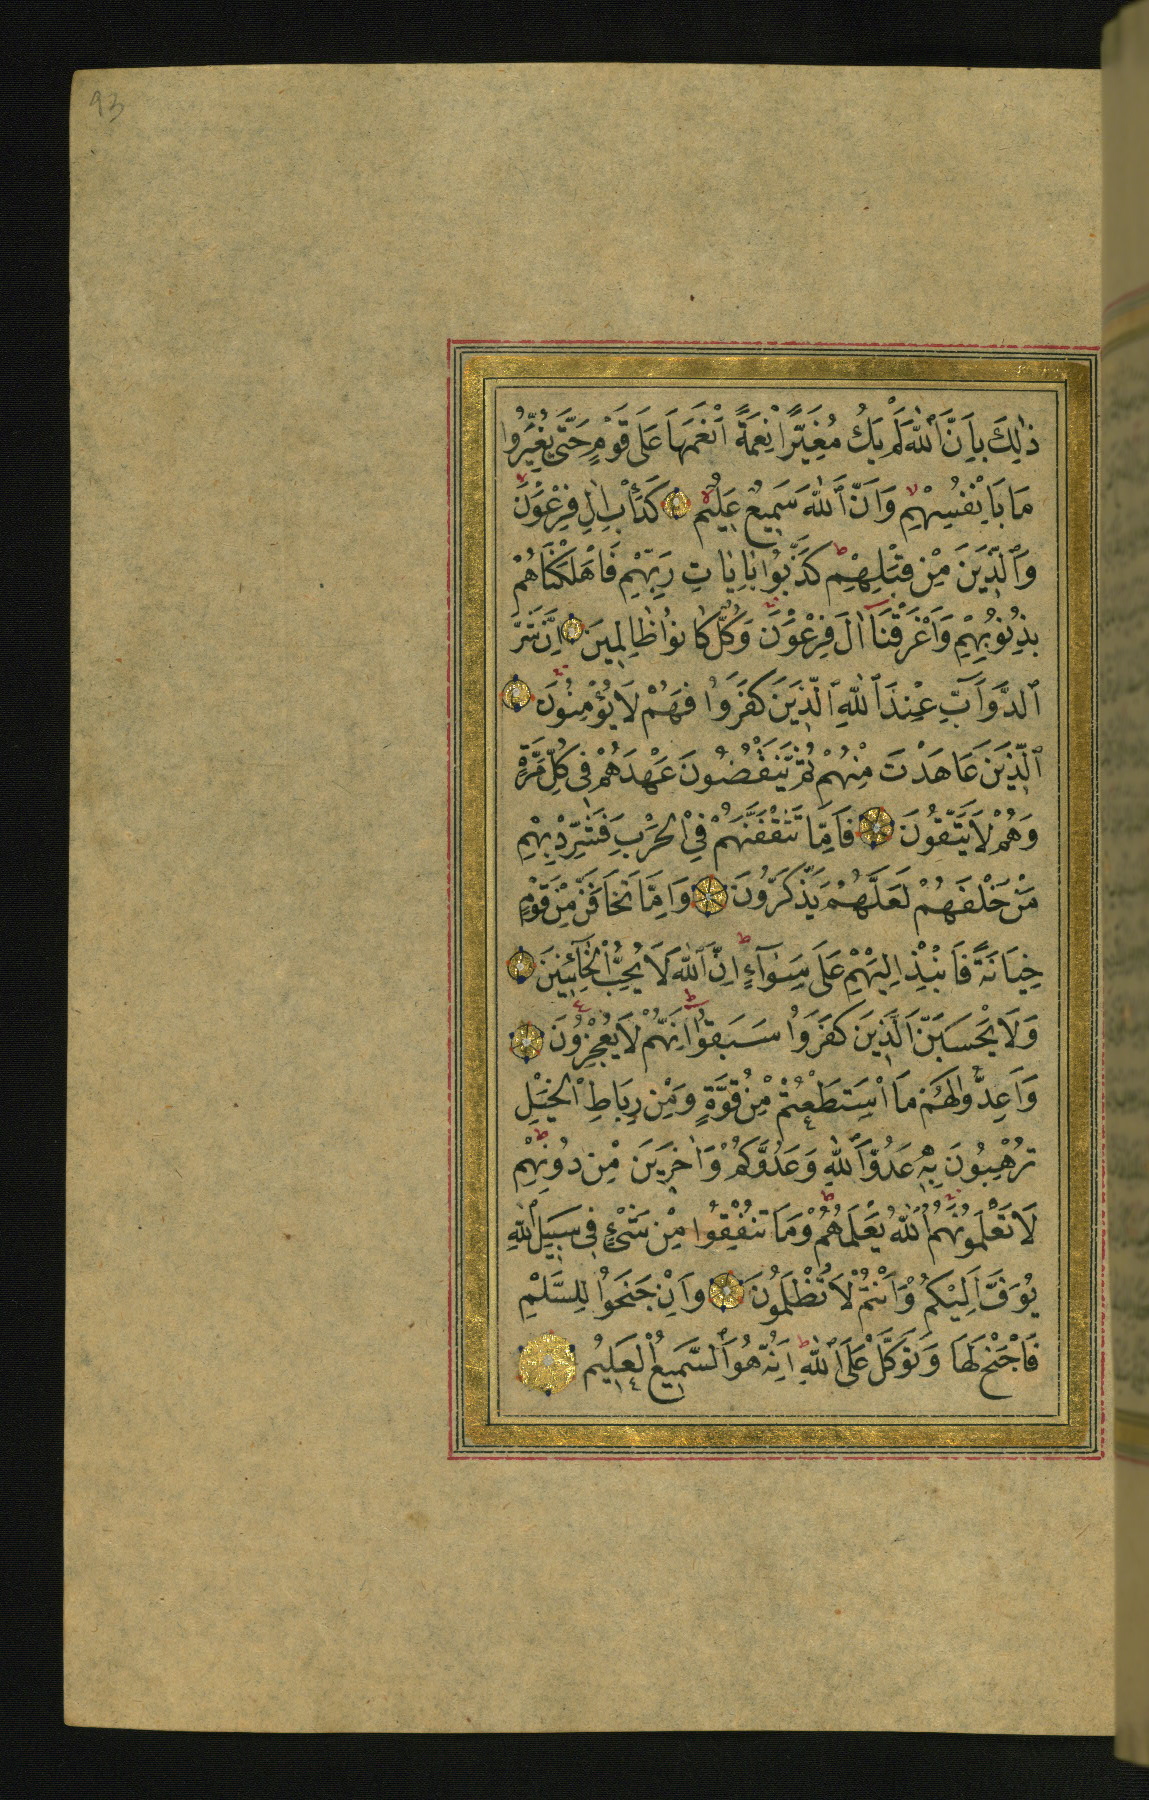 93
ذٰلِكَ بِاَنَّ ٱللّٰهَ لَمْ يَكُ مُغَيِّرًا نِعْمَةً اَنْعَمَهَا عَلٰى قَوْمٍ حَتّٰى يُغَيِّرُوا
مَا بِاَنْفُسِهِمْ وَاَنَّ ٱللّٰهَ سَمِيعٌ عَلِيمٌ كَدَأْبِ اٰلِ فِرْعَوْنَ
وَٱلَّذِينَ مِنْ قَبْلِهِمْ كَذَّبُوا بِاٰيَاتِ رَبِّهِمْ فَاَهْلَكْنَاهُمْ
بِذُنُوبِهِمْ وَاَغْرَقْنَا اٰلَ فِرْعَوْنَ وَكُلٌّ كَانُوا ظَالِمِينَ اِنَّ شَرَّ
ٱلدَّوَابِّ عِنْدَ ٱللّٰهِ ٱلَّذِينَ كَفَرُوا فَهُمْ لَا يُؤْمِنُونَ
ٱلَّذِينَ عَاهَدْتَ مِنْهُمْ ثُمَّ يَنْقُضُونَ عَهْدَهُمْ فِى كُلِّ مَرَّةٍ
وَهُمْ لَا يَتَّقُونَ فَاِمَّا تَثْقَفَنَّهُمْ فِى الْحَرْبِ فَشَرِّدْ بِهِمْ
مَنْ خَلْفَهُمْ لَعَلَّهُمْ يَذَّكَّرُونَ وَاِمَّا تَخَافَنَّ مِنْ قَوْمٍ
خِيَانَةً فَانْبِذْ اِلَيْهِمْ عَلٰى سَوَآءٍ اِنَّ ٱللّٰهَ لَا يُحِبُّ الْخَآئِنِينَ
وَلَا يَحْسَبَنَّ ٱلَّذِينَ كَفَرُوا سَبَقُوا اِنَّهُمْ لَا يُعْجِزُونَ
وَاَعِدُّوا لَهُمْ مَا اسْتَطَعْتُمْ مِنْ قُوَّةٍ وَمِنْ رِبَاطِ الْخَيْلِ
تُرْهِبُونَ بِهِ عَدُوَّ ٱللّٰهِ وَعَدُوَّكُمْ وَاٰخَرِينَ مِنْ دُونِهِمْ
لَا تَعْلَمُونَهُمُ ٱللّٰهُ يَعْلَمُهُمْ وَمَا تُنْفِقُوا مِنْ شَىْءٍ فِى سَبِيلِ ٱللّٰهِ
يُوَفَّ اِلَيْكُمْ وَاَنْتُمْ لَا تُظْلَمُونَ وَاِنْ جَنَحُوا لِلسَّلْمِ
فَاجْنَحْ لَهَا وَتَوَكَّلْ عَلَى ٱللّٰهِ اِنَّهُ هُوَ ٱلسَّمِيعُ الْعَلِيمُ